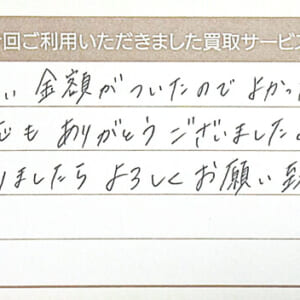 回ご利用いただきました買取サービス
い 金額がついたので よかっ
も ありがとう ございました
りましたら よろしく お願い 致